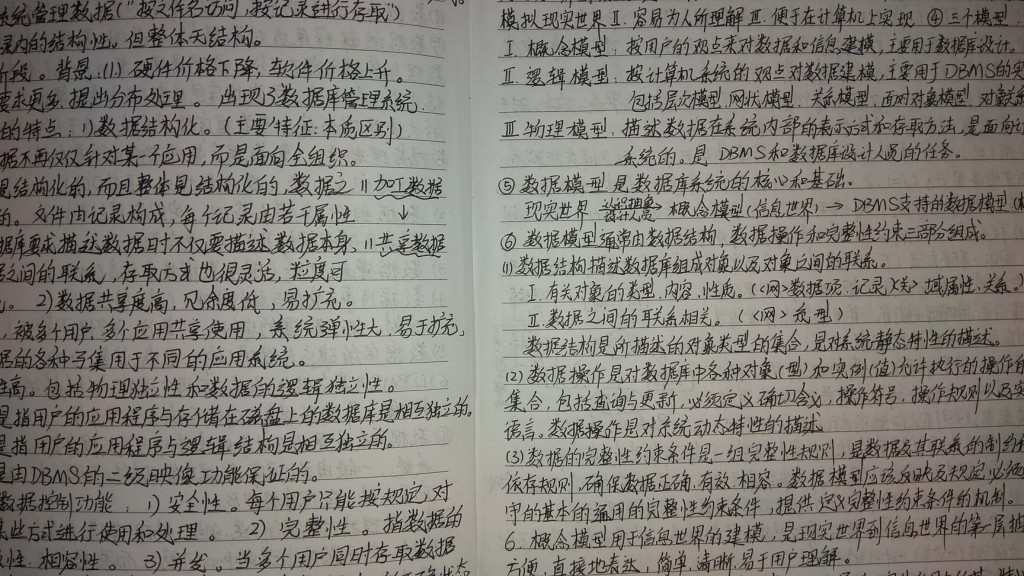 系统管理数据("按文件名访问,按记录进行存取")
录内的结构性。但整体无结构。
阶段。背景:(1) 硬件价格下降,软件价格上升。
要求更多,提出分布处理。 出现了数据库管理系统
的特点:1)数据结构化。(主要特征:本质区别)
据不再仅仅针对某一个应用,而是面向全组织。
是结构化的,而且整体是结构化的,数据之 11 加工数据
的。文件由记录构成,每个记录由若干属性 ↓
据库要求描述数据时不仅要描述数据本身、11 共享数据
据之间的联系,存取方式也很灵活,粒度可
2)数据共享度高,冗余度低,易扩充。
,被多个用户,多个应用共享使用,系统弹性大,易于扩充,
据的各种子集用于不同的应用系统。
性高。包括物理独立性和数据的逻辑独立性。
是指用户的应用程序与存储在磁盘上的数据库是相互独立的。
是指用户的应用程序与逻辑结构是相互独立的.
是由DBMS的二级映像功能保证的。
数据控制功能: 1)安全性。每个用户只能按规定,对
某些方式进行使用和处理。 2) 完整性。指数据的
性.相容性。 3)并发。当多个用户同时存取数据
模拟现实世界 Ⅱ. 容易为人所理解 Ⅲ. 便于在计算机上实现. ④三个模型:
Ⅰ. 概念模型:按用户的观点来对数据和信息建模,主要用于数据库设计。
Ⅱ. 逻辑模型:按计算机系统的观点对数据建模,主要用于DBMS的实
包括层次模型.网状模型.关系模型.面对对象模型.对象关
Ⅲ.物理模型:描述数据在系统内部的表示方式和存取方法,是面向计
系统的。是DBMS和数据库设计人员的任务。
⑤ 数据模型是数据库系统的核心和基础.
现实世界 认识抽象 → 概念模型(信息世界) → DBMS支持的数据模型(机
⑥ 数据模型通常由数据结构,数据操作和完整性约束三部分组成。
(1)数据结构描述数据库组成对象以及对象之间的联系。
Ⅰ.有关对象的类型,内容,性质。(<网>数据项.记录<关>域属性,关系。)
Ⅱ.数据之间的联系相关。(<网>系型)
数据结构是所描述的对象类型的集合,是对系统静态特性的描述。
(2) 数据操作是对数据库中各种对象(型)和实例(值)允许执行的操作的
集合,包括查询与更新,必须定义确切含义,操作符号,操作规则以及实
语言。数据操作是对系统动态特性的描述
(3)数据的完整性约束条件是一组完整性规则,是数据及其联系的制约和
依存规则,确保数据正确.有效.相容。数据模型应该反映及规定必须
守的基本的通用的完整性约束条件,提供定义完整性约束条件的机制。
6. 概念模型用于信息世界的建模,是现实世界到信息世界的第一层抽
方便,直接地表达,简单.清晰.易于用户理解。